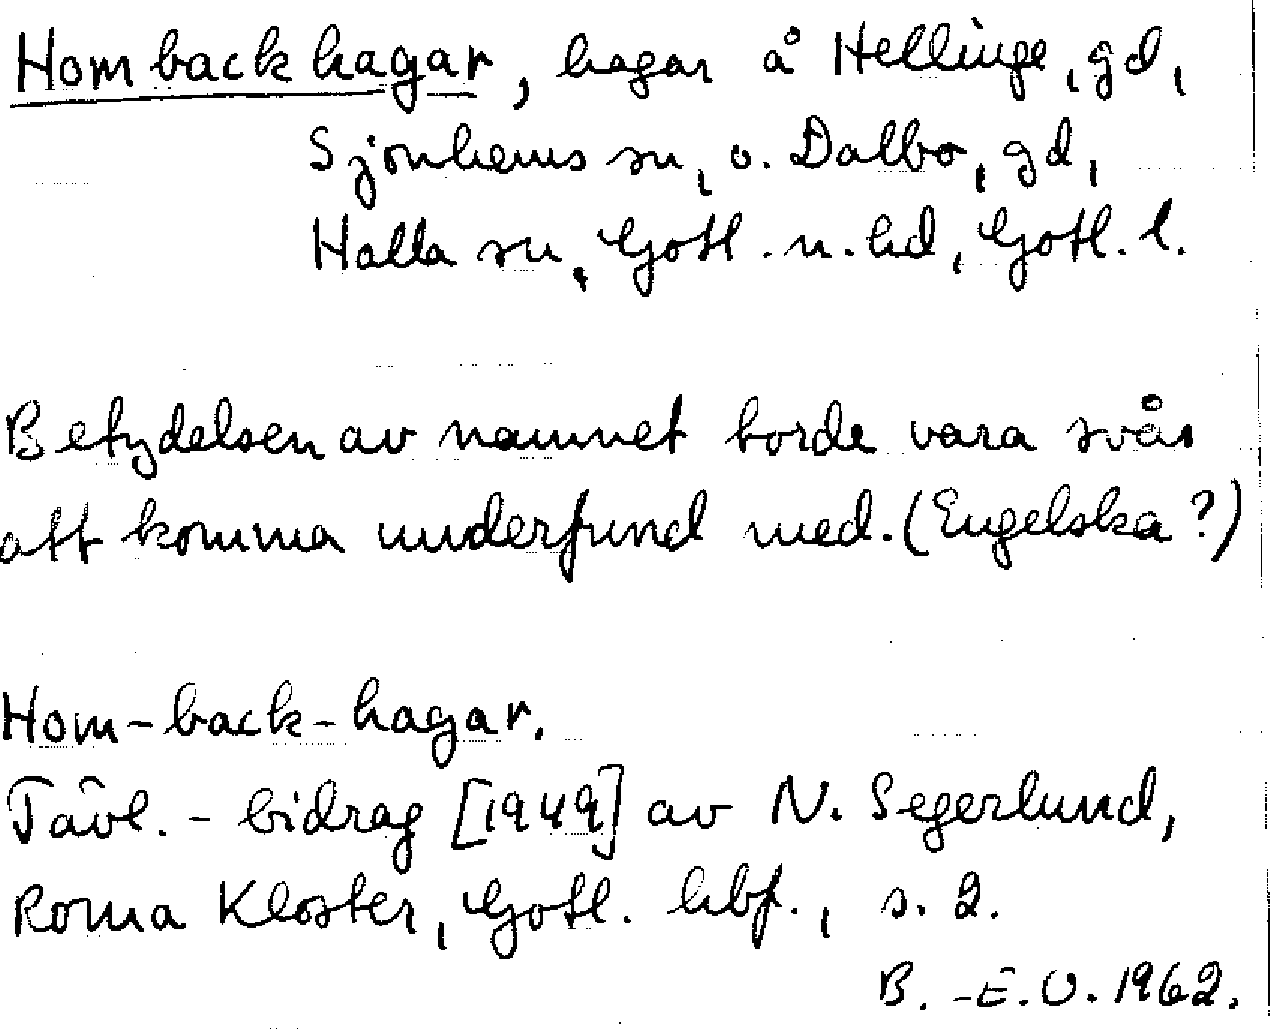 Hombackhagar, hagar å Hellinge, gd,
Sjonhems sn, o. Dalbo, gd,
Halla sn, Gotl. n. hd, Gotl. l.
Betydelsen av namnet borde vara svår
att komma underfund med. (Engelska?)
Hom-back-hagar.
Tävl.-bidrag [1949] av N. Segerlund,
Roma Kloster, Gotl. hbf., s. 2.
B.-E.U. 1962.